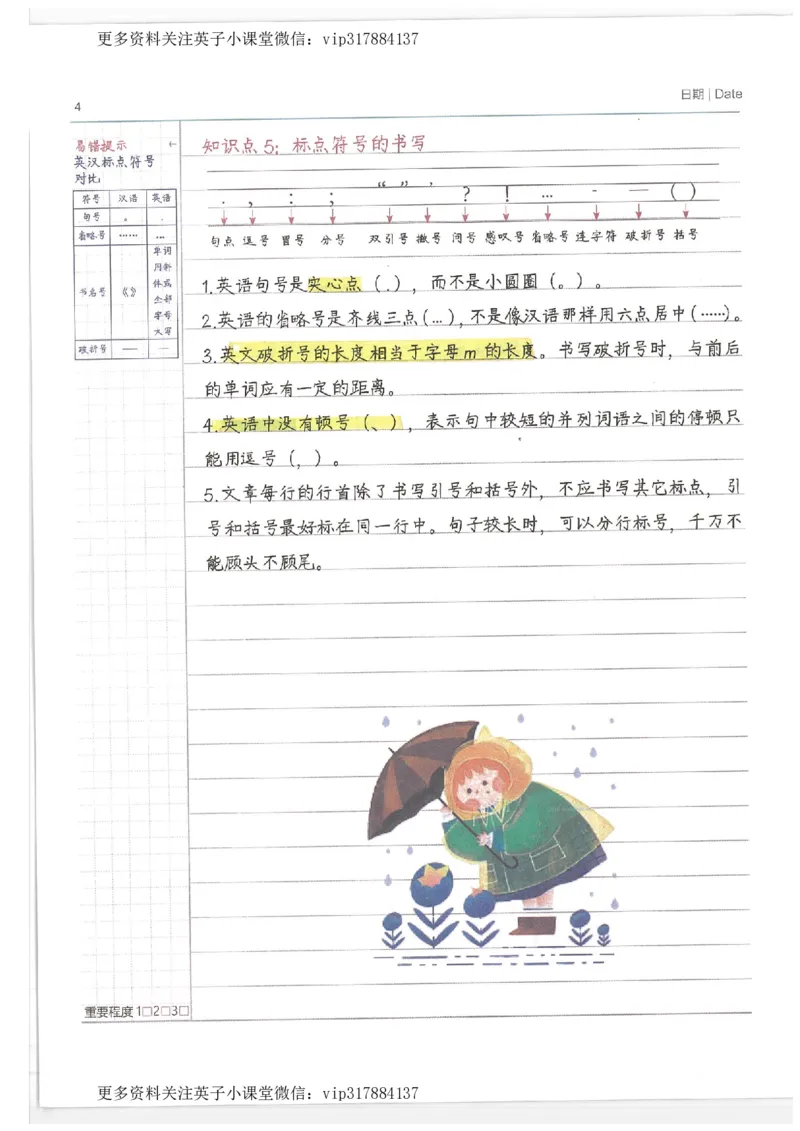 更多资料关注英子小课堂微信：vip317884137
日期 | Date
4
易错提示 ←
英汉标点符号
对比
符号 汉语 英语
句号 。 .
省略号 …… ...
书名号 《》 单词用斜体或全部字母大写
破折号 —— —
知识点 5：标点符号的书写
. , : ; “ ” ' ? ! ... - — ( )
句点 逗号 冒号 分号 双引号 撇号 问号 感叹号 省略号 连字符 破折号 括号
1.英语句号是实心点（.），而不是小圆圈（。）。
2.英语的省略号是齐线三点(...)，不是像汉语那样用六点居中(……)。
3.英文破折号的长度相当于字母m的长度。书写破折号时，与前后
的单词应有一定的距离。
4.英语中没有顿号（、），表示句中较短的并列词语之间的停顿只
能用逗号（，）。
5.文章每行的行首除了书写引号和括号外，不应书写其它标点，引
号和括号最好标在同一行中。句子较长时，可以分行标号，千万不
能顾头不顾尾。
重要程度 1□2□3□
更多资料关注英子小课堂微信：vip317884137